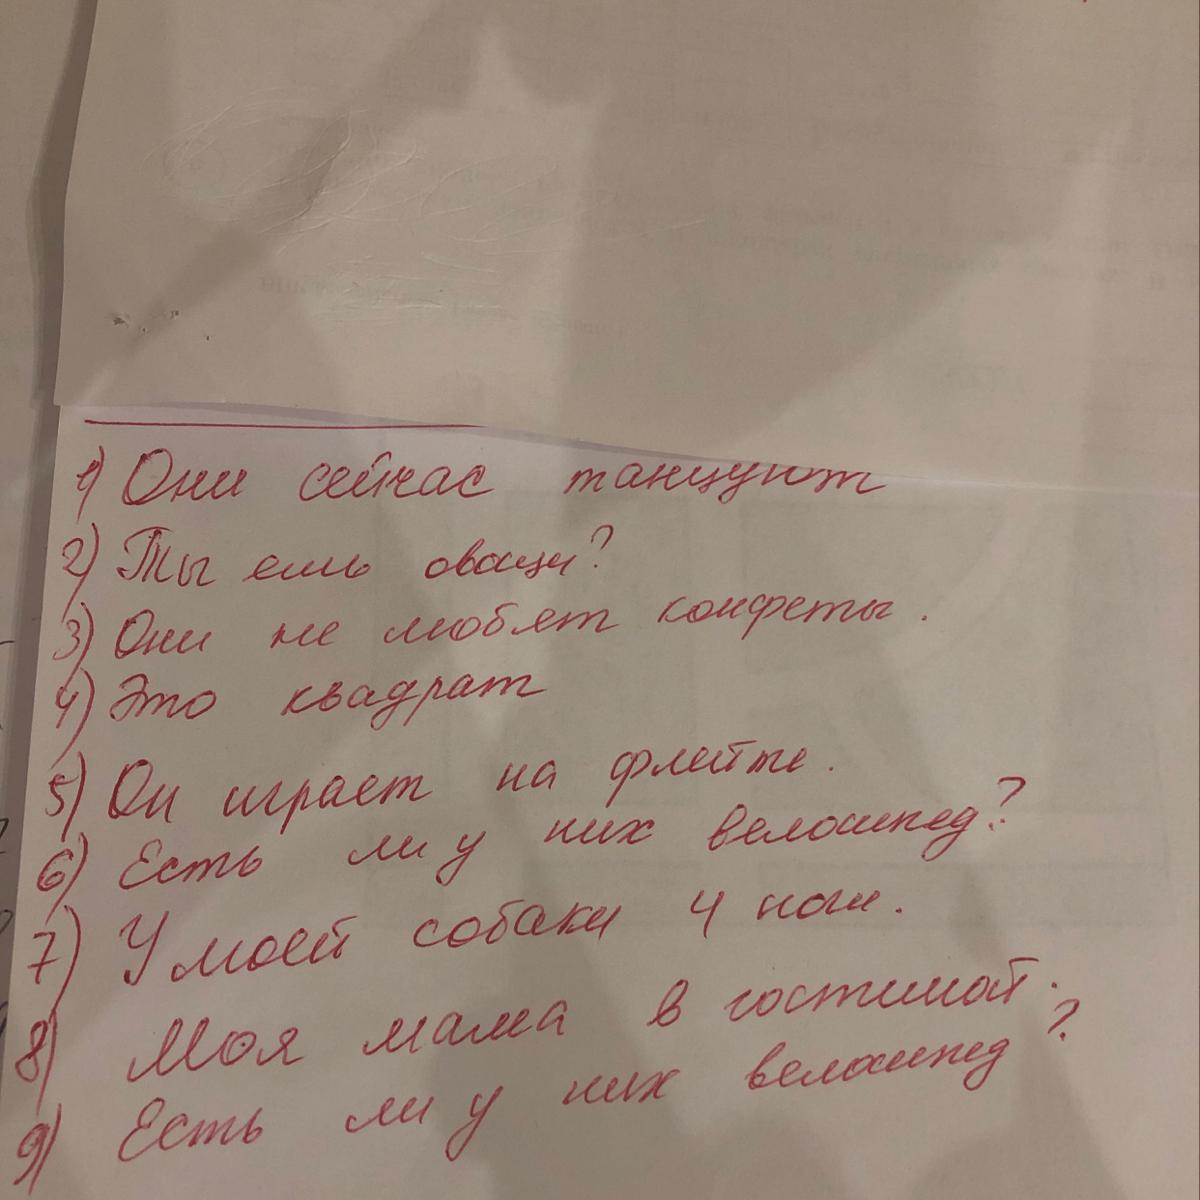 1) Они сейчас танцуют
2) Ты ешь овощи?
3) Они не любят конфеты.
4) Это квадрат
5) Он играет на флейте.
6) Есть ли у них велосипед?
7) У моей собаки 4 ноги.
8) Моя мама в гостиной.
9) Есть ли у них велосипед?